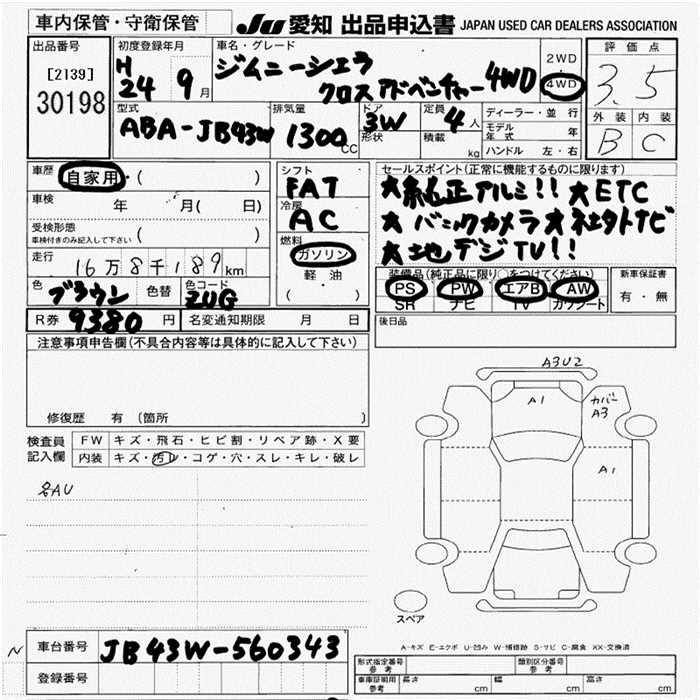 車内保管・守衛保管
JU 愛知 出品申込書 JAPAN USED CAR DEALERS ASSOCIATION
出品番号
[2139]
30198
初度登録年月
H 24 9月
車名・グレード
ジムニーシエラ
クロスアドベンチャー 4WD
2WD
4WD
評価点
3.5
外装 内装
B C
型式
ABA-JB43W
排気量
1300 CC
ドア
3W
形状
定員
4人
積載 kg
ディーラー・並行
モデル年式 年
ハンドル 左・右
車歴
自家用・( )
車検 年 月( 日)
受検形態
車検付きのみ記入して下さい ( )
走行
16万8千189km
色
ブラウン
色替
色コード
ZUG
R券 9380円
名変通知期限 月 日
シフト
FAT
冷房
AC
燃料
ガソリン
軽油
( )
セールスポイント(正常に機能するものに限ります)
★純正アルミ!! ★ETC
★バックカメラ★社外ナビ
★地デジTV!!
装備品(純正品に限り○をつけてください)
PS PW エアB AW
SR ナビ TV カワシート
新車保証書
有・無
後日品
注意事項申告欄(不具合内容等は具体的に記入して下さい)
修復歴 有 (箇所 )
検査員記入欄
FW キズ・飛石・ヒビ割・リペア跡・X要
内装 キズ・汚レ・コゲ・穴・スレ・キレ・破レ
各AU
A3U2
A1
カバーA3
A1
スペア
A-キズ E-エクボ U-凹み W-補修跡 S-サビ C-腐食 XX-交換済
N
車台番号 JB43W-560343
登録番号
形式指定番号 参考
類別区分番号 参考
車庫証明用 参考
長さ cm 幅 cm 高さ cm